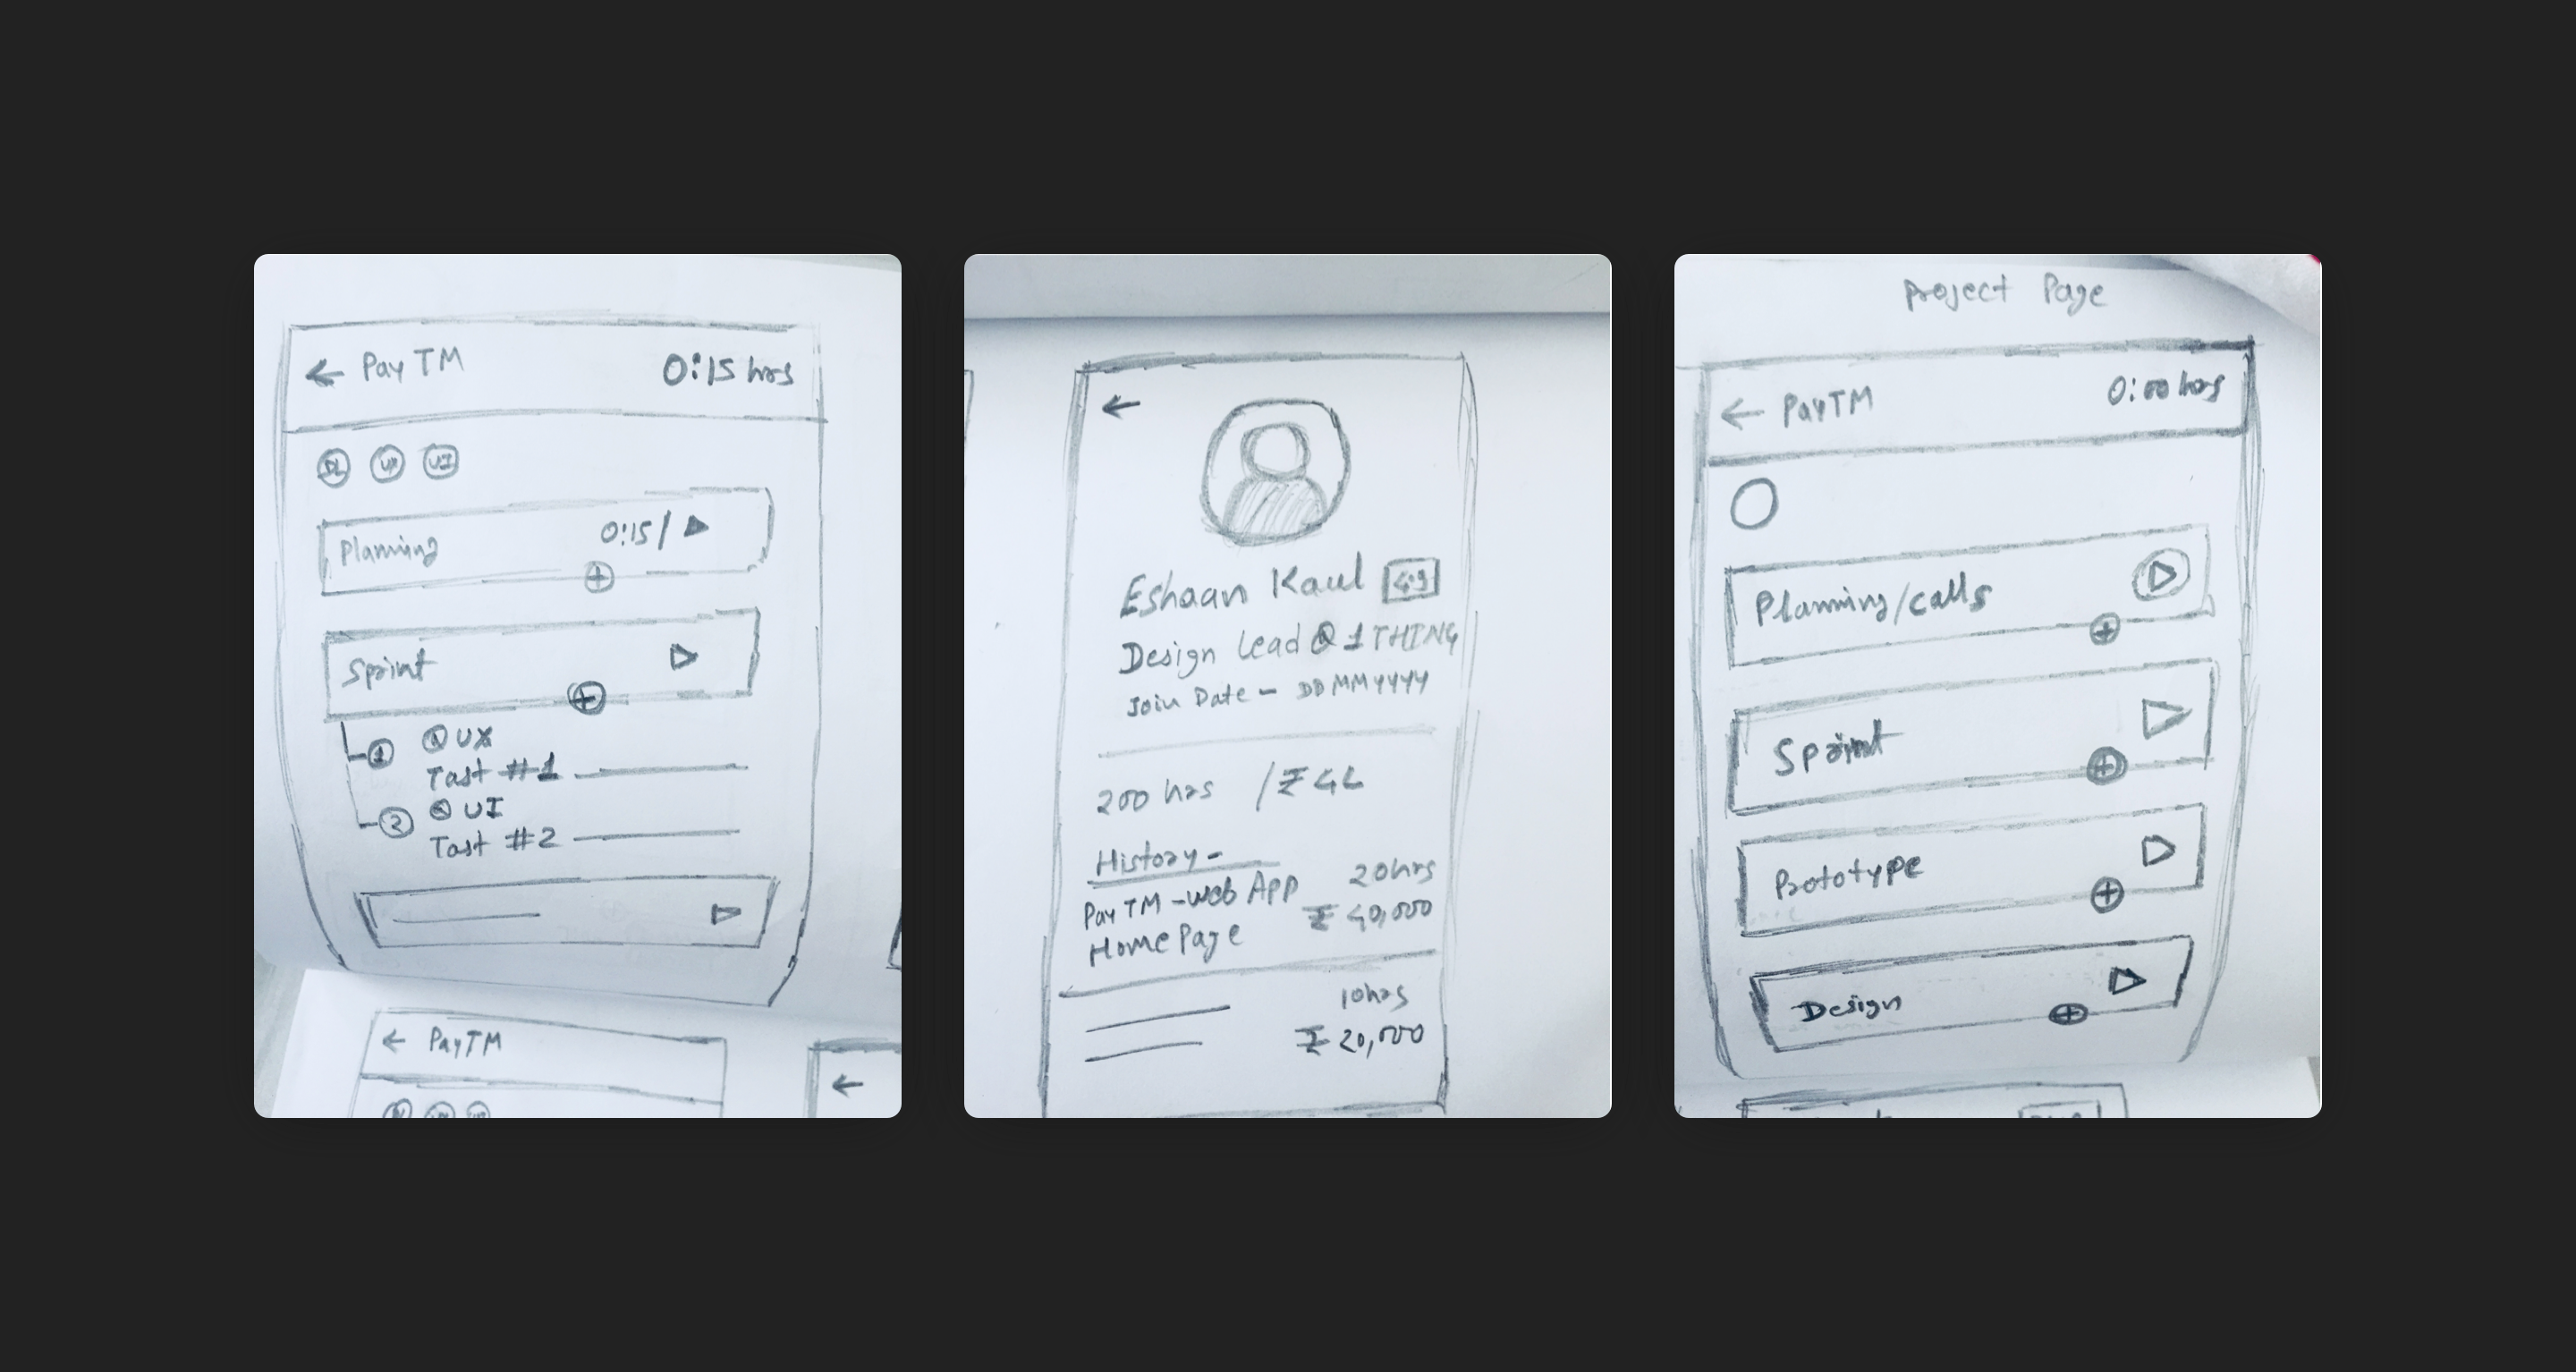 ← PayTM 0:15 hrs
DL UX UI
Planning 0:15/
Sprint
1 UX
Task #1
2 UI
Task #2
← PayTM
←
←
Eshaan Kaul 4.9
Design Lead @ 1THING
Join Date - DDMMYYYY
200 hrs / ₹ 4L
History-
PayTM -web App 20hrs
Home Page ₹ 40,000
10hrs
₹ 20,000
Project Page
← PayTM 0:00 hrs
Planning/calls
Sprint
Prototype
Design